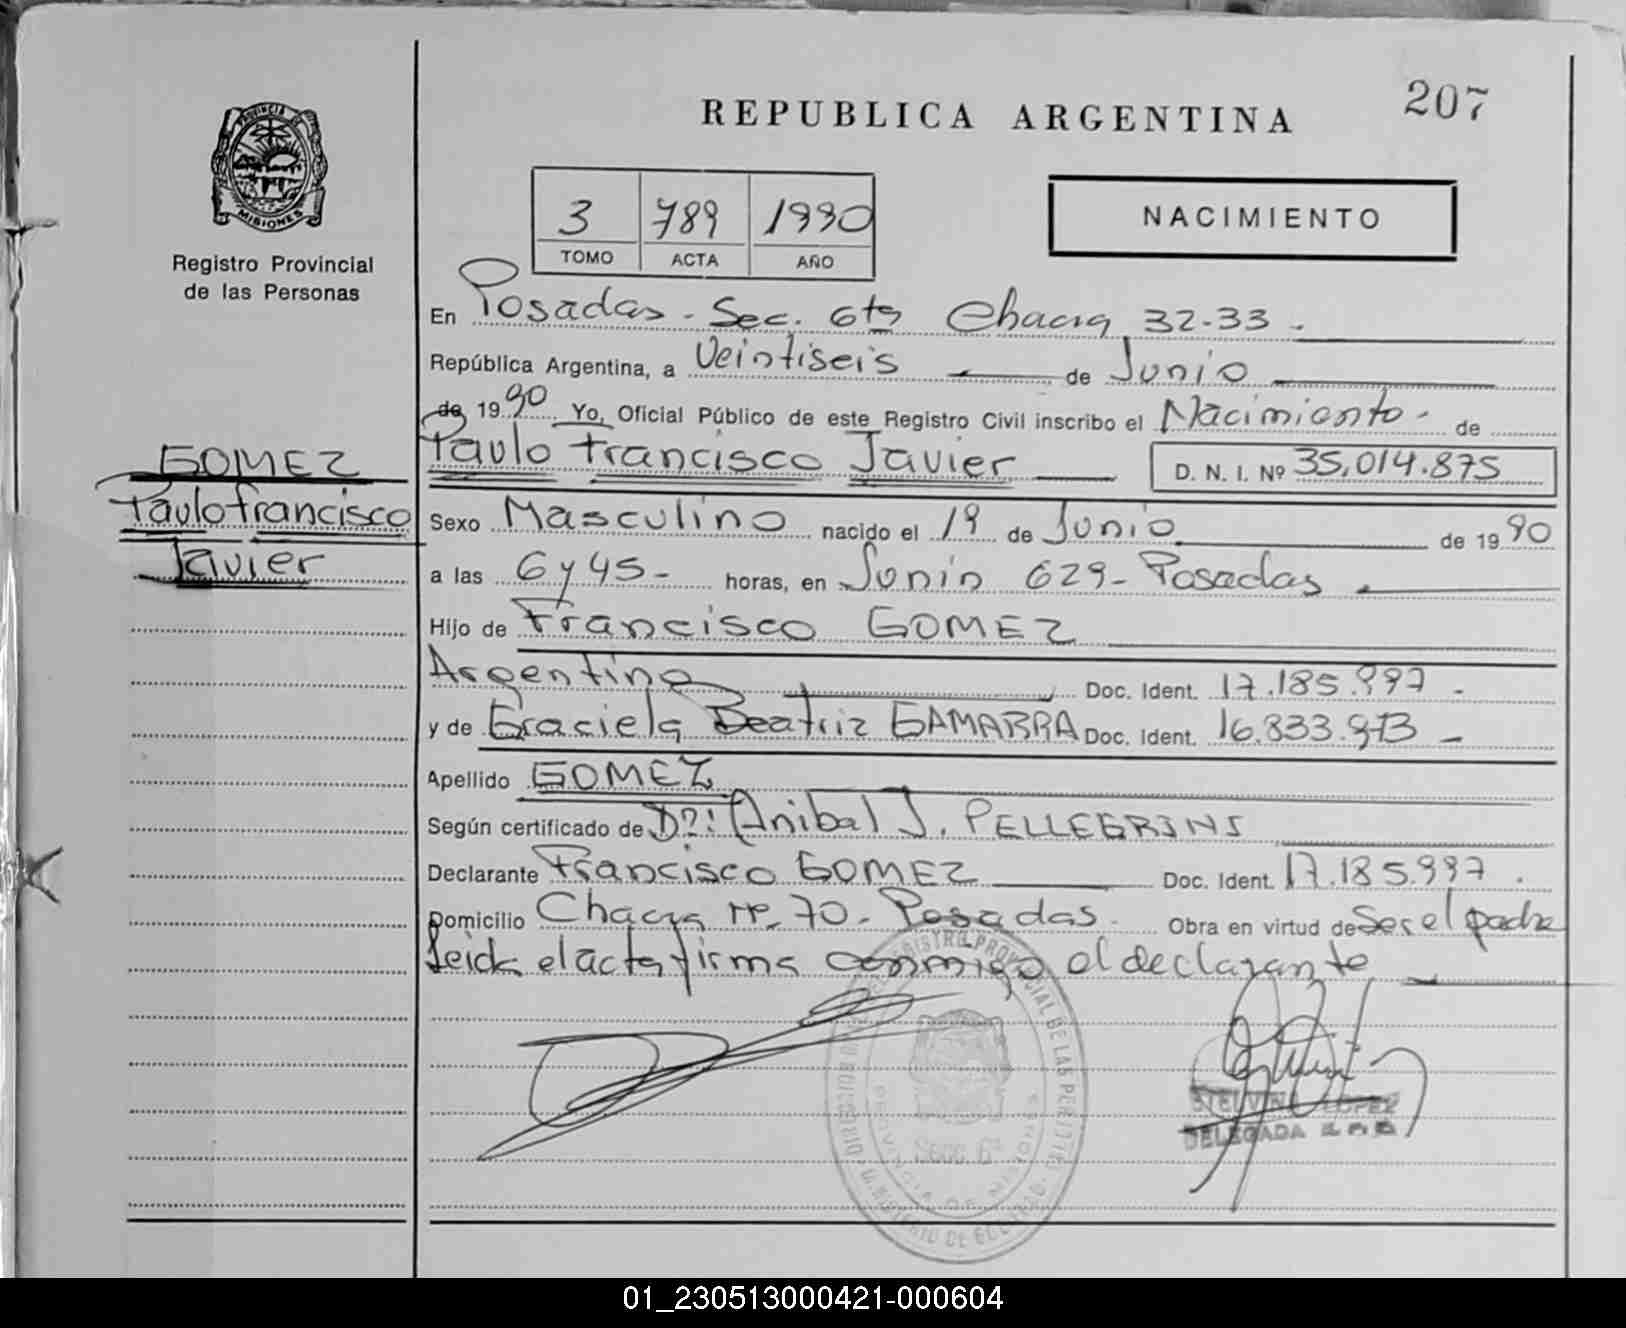 207
REPUBLICA ARGENTINA
PROVINCIA DE MISIONES
Registro Provincial
de las Personas
3 789 1990
TOMO ACTA AÑO
NACIMIENTO
En Posadas - Sec. 6ta Chacra 32-33.
República Argentina, a Veintiseis de Junio
de 1990 Yo, Oficial Público de este Registro Civil inscribo el Nacimiento - de
Paulo Francisco Javier D. N. I. Nº 35.014.875
GOMEZ
Paulo Francisco
Javier
Sexo Masculino nacido el 19 de Junio de 1990
a las 6 y 45 - horas, en Junin 629 - Posadas
Hijo de Francisco GOMEZ
Argentino Doc. Ident. 17.185.997 -
y de Graciela Beatriz GAMARRA Doc. Ident. 16.833.973 -
Apellido GOMEZ
Según certificado de Dr: Anibal J. PELLEGRINI
Declarante Francisco GOMEZ Doc. Ident. 17.185.997.
Domicilio Chacra Nº 70 - Posadas. Obra en virtud de Ser el padre
Leida el acta firma conmigo el declarante
DIRECCION REGISTRO PROVINCIAL DE LAS PERSONAS
MINISTERIO DE GOBIERNO
PROVINCIA DE MISIONES
Secc. 6ª
LOPEZ
DELEGADA
01_230513000421-000604